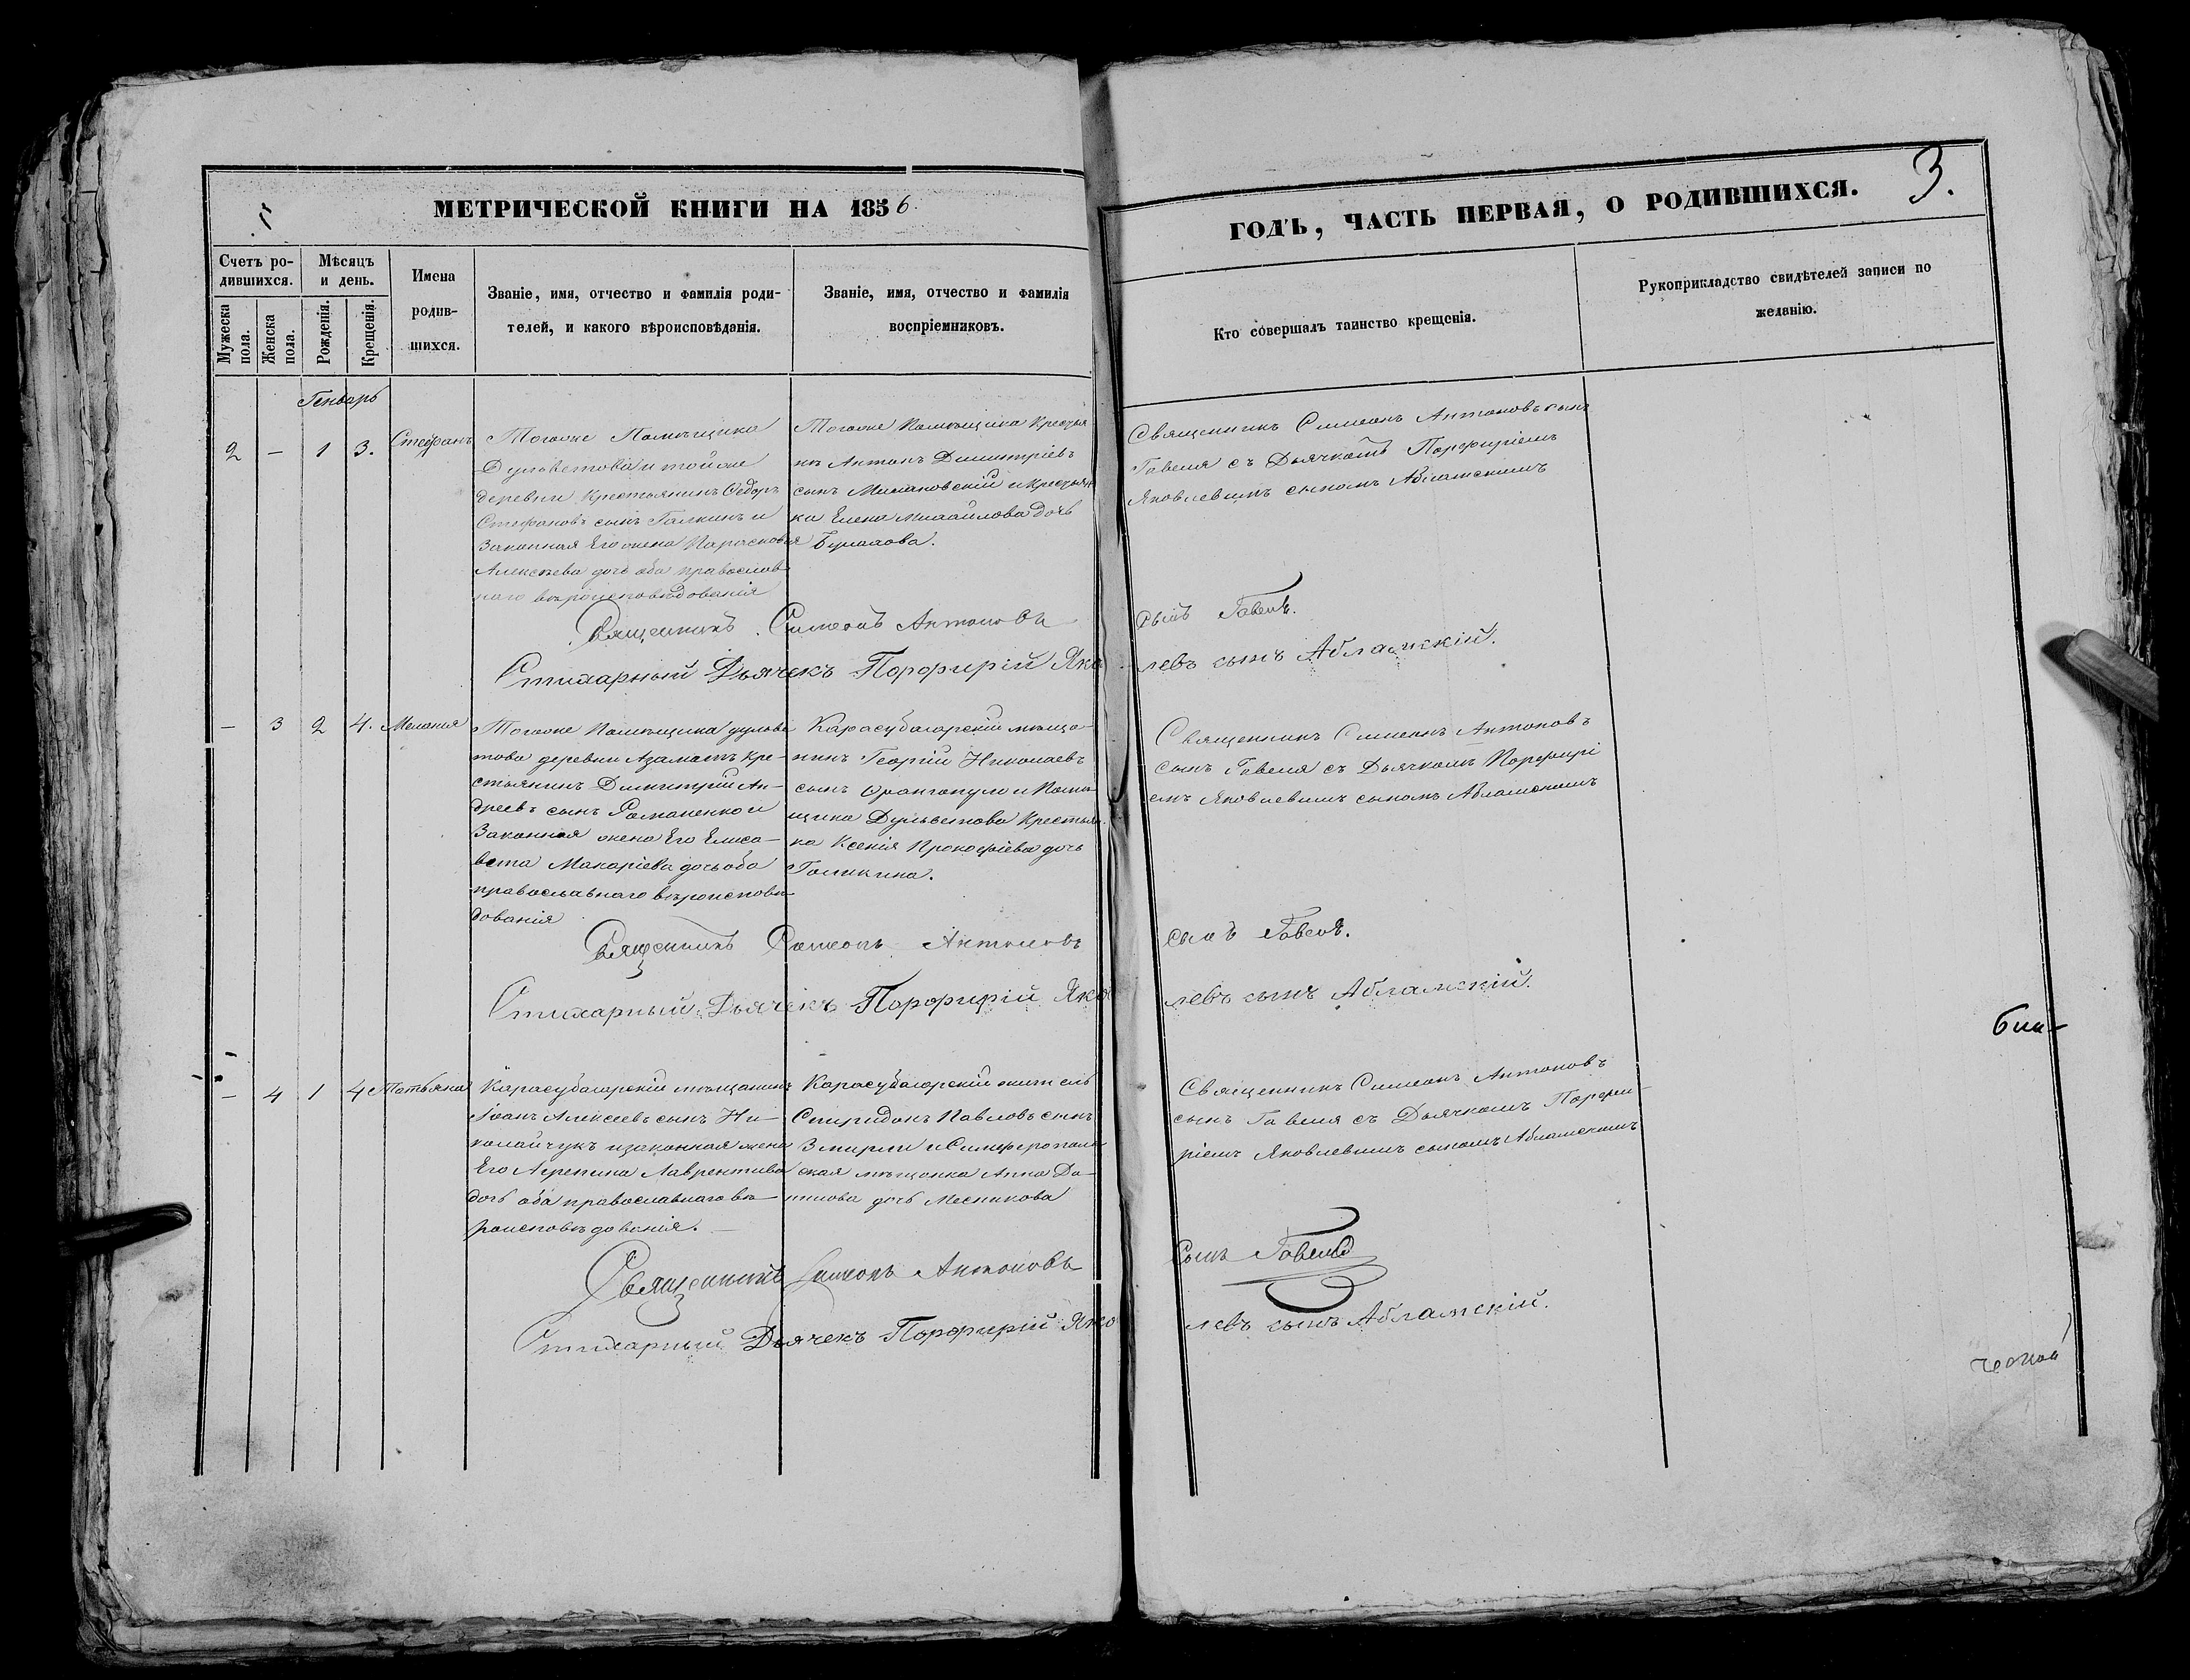 МЕТРИЧЕСКОЙ КНИГИ НА 1856
ГОДЪ, ЧАСТЬ ПЕРВАЯ, О РОДИВШИХСЯ.
3.
Счетъ ро-
дившихся.
Мужеска пола.
Женска пола.
Мѣсяцъ
и день.
Рожденія.
Крещенія.
Имена
родив-
шихся.
Званіе, имя, отчество и фамилія роди-
телей, и какого вѣроисповѣданія.
Званіе, имя, отчество и фамилія
воспріемниковъ.
Кто совершалъ таинство крещенія.
Рукоприкладство свидѣтелей записи по
желанію.
Генварь
2 – 1 3. Стефанъ
Тогоже Помѣщика
Дульветова и тойже
деревни Крестьянинъ Ѳедоръ
Стефановъ сынъ Галкинъ и
Законная Его жена Парасковія
Алексѣева дочь оба православ
наго вѣроисповѣдованія
Тогоже Помѣщика Крестья
нъ Антонъ Димитріевъ
сынъ и крестьян
ка Елена Михайлова дочь
Священникъ Симеонъ Антоновъ сынъ
Гавеля съ Дьячкомъ Порфиріемъ
Яковлевымъ сыномъ Абламскимъ
Священникъ Симеонъ Антоновъ
сынъ Гавель.
Стихарный Дьячекъ Порфирій Яков
левъ сынъ Абламскій.
– 3 2 4. Меланія
Тогоже Помѣщика Дульве
това деревни Азаматъ Кре-
стьянинъ Димитрій Ан-
дреевъ сынъ Романенко и
Законная жена Его Елиса-
вета Макаріева дочь оба
православнаго вѣроисповѣ
дованія
Карасубазарскій мѣща-
нинъ Георгій Николаевъ
сынъ Франгопуло и Помѣ-
щика Дульветова Крестьян
ка Ксенія Прокофіева дочь
Священникъ Симеонъ Антоновъ
сынъ Гавеля съ Дьячкомъ Порфирі
емъ Яковлевымъ сыномъ Абламскимъ
Священникъ Симеонъ Антоновъ
сынъ Гавель.
Стихарный Дьячекъ Порфирій Яков
левъ сынъ Абламскій.
– 4 1 4 Татьяна
Карасубазарскій мѣщанинъ
Іоанъ Алексеевъ сынъ Ни-
колайчукъ и законная жена
Его Агрепина Лаврентиева
дочь оба православнаго вѣ-
роисповѣдованія.
Карасубазарскій житель
Спиридонъ Павловъ сынъ
Змирли и Симферополь
ская мѣщанка Анна Да-
нилова дочь Месникова
Священникъ Симеонъ Антоновъ
сынъ Гавеля съ Дьячкомъ Порфи-
ріемъ Яковлевымъ сыномъ Абламскимъ
Священникъ Симеонъ Антоновъ
сынъ Гавель
Стихарный Дьячекъ Порфирій Яков
левъ сынъ Абламскій.